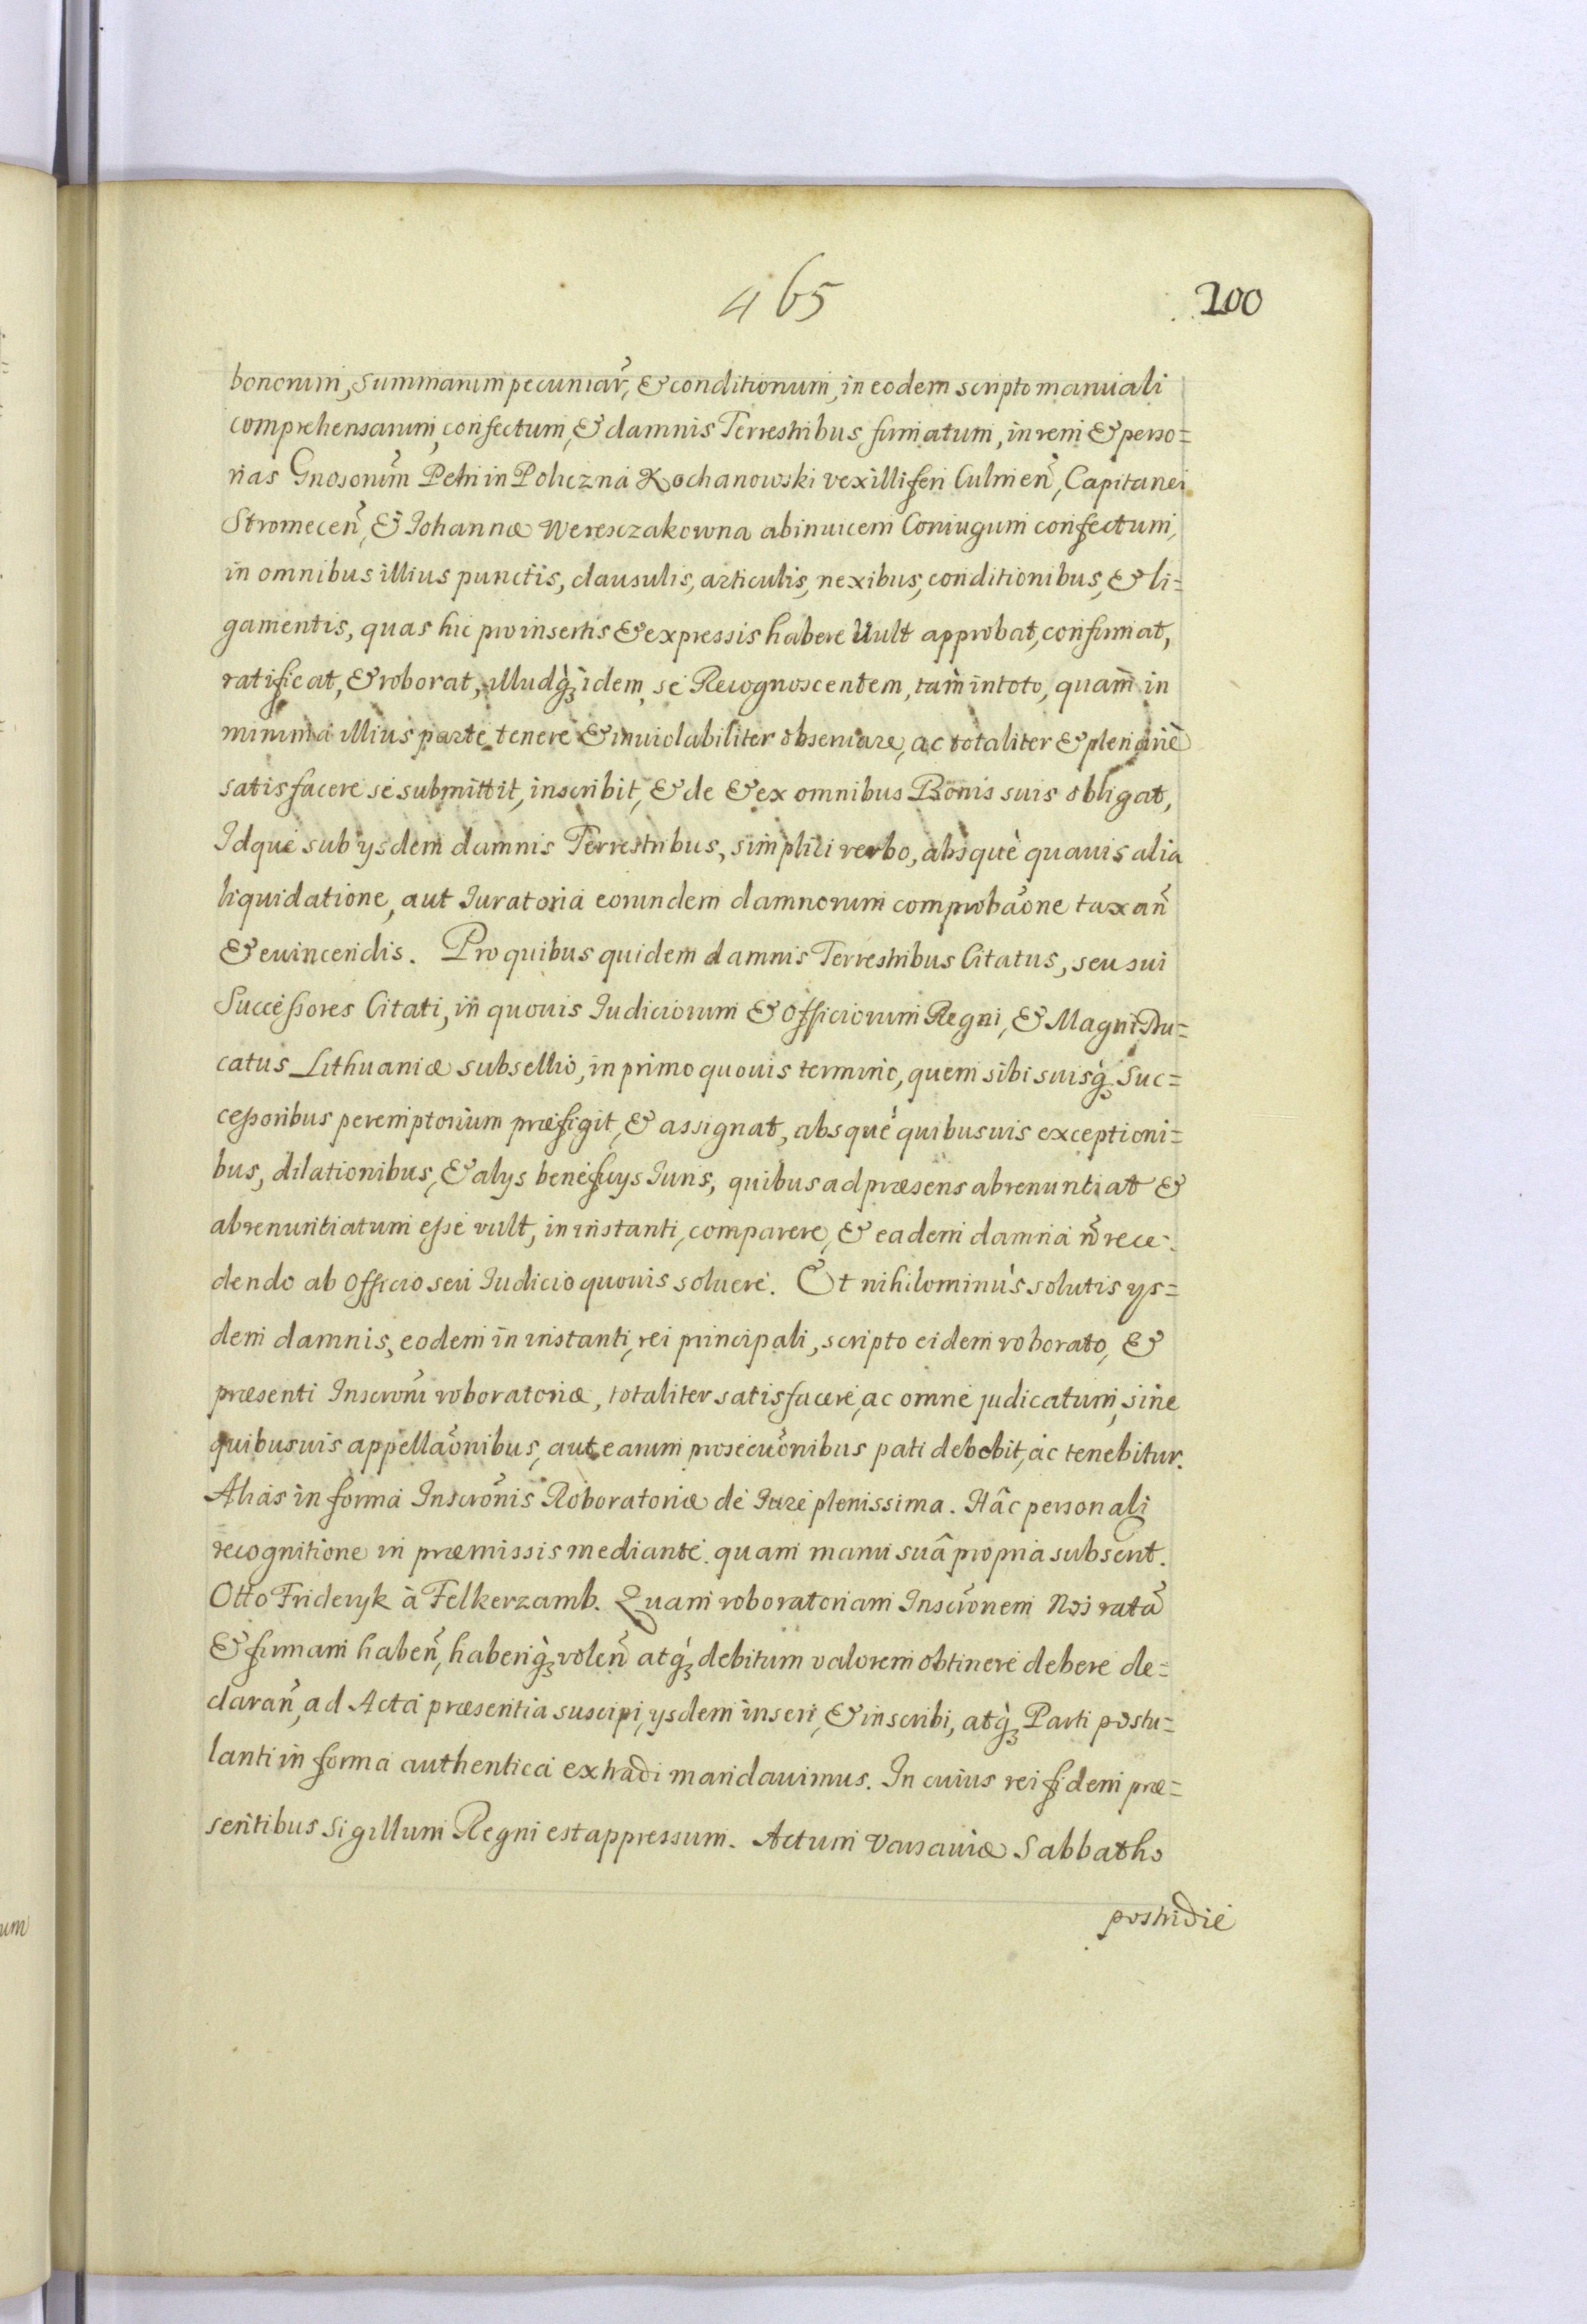 465
200
bonorum, Summarum pecuniar̃, & conditionum, in eodem scripto manuali
comprehensarum, confectum, & damnis Terrestribus firmatum, in rem & perso=
nas Gnosorum̃ Petri in Policzna Kochanowski vexilliferi Culmeñ, Capitanei
Stromeceñ, & Johannæ Weresczakowna abinuicem Coniugum confectum,
in omnibus illius punctis, clausulis, articulis, nexibus, conditionibus, & li=
gamentis, quas hic pro insertis & expressis habere Uult approbat, confirmat,
ratificat, & roborat, illudq́ꝫ idem se Recognoscentem, tam̀ in toto, quam̀ in
minima illius parte tenere & inuiolabiliter obseruare, ac totaliter & plenarie
satisfacere se submittit, inscribit, & de & ex omnibus Bonis suis obligat,
Idque sub ysdem damnis Terrestribus, simplici verbo, absque quauis alia
liquidatione, aut Iuratoria eorundem damnorum comprobãone taxañ
& euincendis. Pro quibus quidem damnis Terrestribus Citatus, seu sui
Succeßores Citati, in quouis Iudiciorum & Officiorum Regni, & Magni Du=
catus Lithuaniæ subsellio, in primo quouis termino, quem sibi suisq́ꝫ Suc=
ceßoribus peremptorium præfigit, & assignat, absque quibusuis exceptioni=
bus, dilationibus, & alys beneficys Iuris, quibus ad præsens abrenuntiat &
abrenuntiatum eße vult, in instanti, comparere, & eadem damna ñ rece=
dendo ab Officio seu Iudicio quouis soluere. Et nihilominùs solutis ys=
dem damnis, eodem in instanti, rei principali, scripto eidem roborato, &
præsenti Inscrõni roboratoriæ, totaliter satisfacere, ac omne judicatum, sine
quibusuis appellãonibus, aut earum prosecũonibus pati debebit, ac tenebitur.
Alias in forma Inscrõnis Roboratoriæ de Iure plenissima. Hâc personali
recognitione in præmissis mediante. quam manu suâ propria subscrit.
Otto Frideryk à Felkerzamb. Quam roboratoriam Inscrõnem Nos ratã
& firmam habeñ, haberiq́ꝫ voleñ atq́ꝫ debitum valorem obtinere debere de=
clarañ, ad Acta præsentia suscipi, ysdem inseri, & inscribi, atq́ꝫ Parti postu=
lanti in forma authentica extradi mandauimus. In cuius rei fidem præ=
sentibus Sigillum Regni est appressum. Actum Varsauiæ Sabbatho
postridie
um